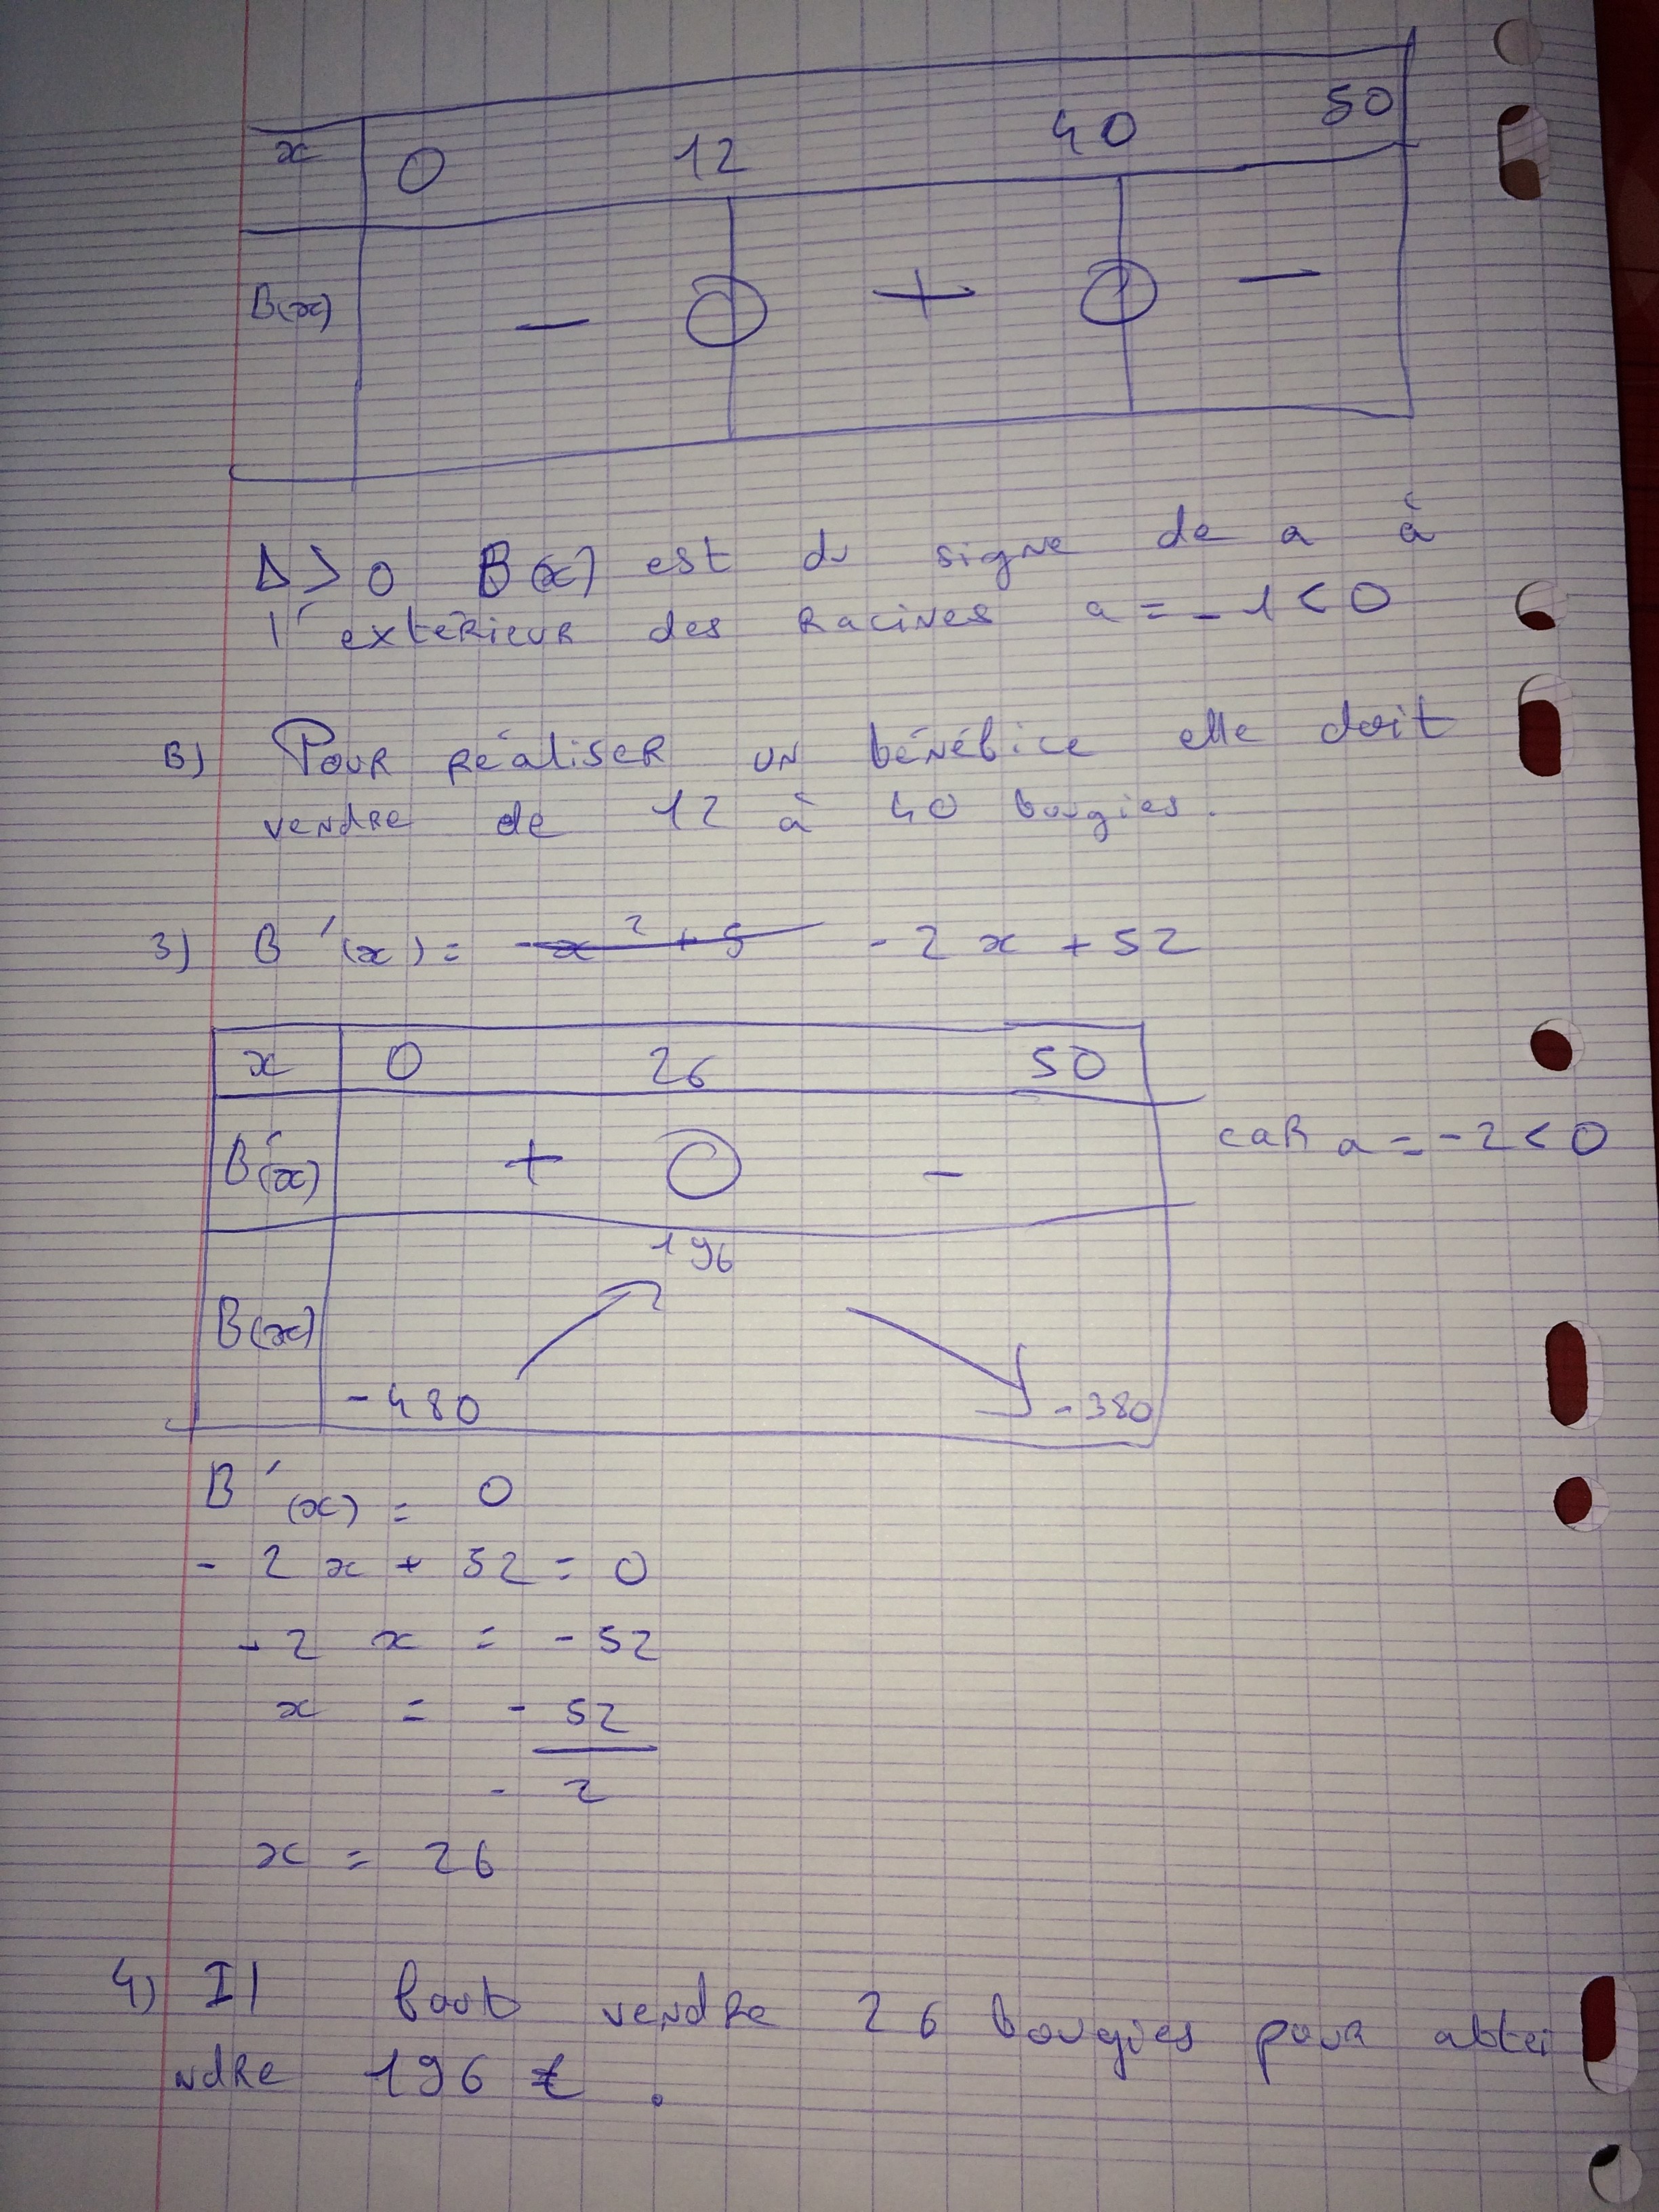 x 0 12 40 50
B(x) - 0 + 0 -
Δ > 0 B(x) est du signe de a à
l'extérieur des racines a = -1 < 0
B) Pour réaliser un bénéfice elle doit
vendre de 12 à 40 bougies.
3) B'(x) = -x² + 5 - 2x + 52
x 0 26 50
B'(x) + 0 - car a = -2 < 0
196
B(x)
-480 -380
B'(x) = 0
-2x + 52 = 0
-2x = -52
x = -52
-2
x = 26
4) Il faut vendre 26 bougies pour attei
ndre 196 €.